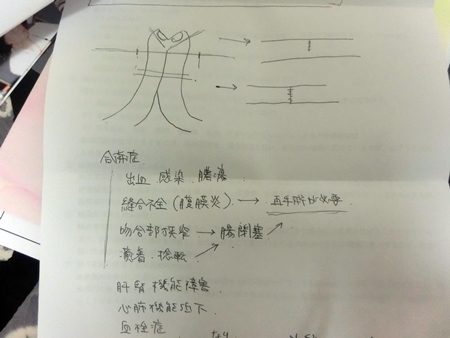 合併症
出血 感染 膿瘍
縫合不全(腹膜炎) → 再手術 必要
吻合部狭窄 → 腸閉塞
癒着・捻転
肝腎機能障害
心肺機能低下
血栓症